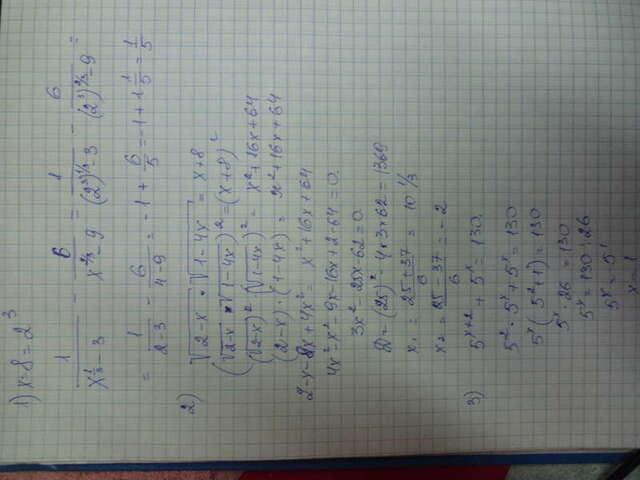 1) x=8=2³
1/(x^(1/3)-3) - 6/(x^(2/3)-9) = 1/((2³)^(1/3)-3) - 6/((2³)^(2/3)-9) =
= 1/(2-3) - 6/(4-9) = -1 + 6/5 = -1+1 1/5 = 1/5
2) √(2-x) · √(1-4x) = x+8
(√(2-x) · √(1-4x))² = (x+8)²
(√(2-x))² · (√(1-4x))² = x²+16x+64
(2-x)·(1-4x) = x²+16x+64
2-x-8x+4x² = x²+16x+64
4x²-x²-9x-16x+2-64=0
3x²-25x-62=0
D=(25)²-4×3×62=1369
x₁ = (25+37)/6 = 10 1/3
x₂ = (25-37)/6 = -2
3) 5^(x+2) + 5^x = 130
5²·5^x+5^x=130
5^x(5²+1)=130
5^x·26=130
5^x=130:26
5^x=5¹
x=1